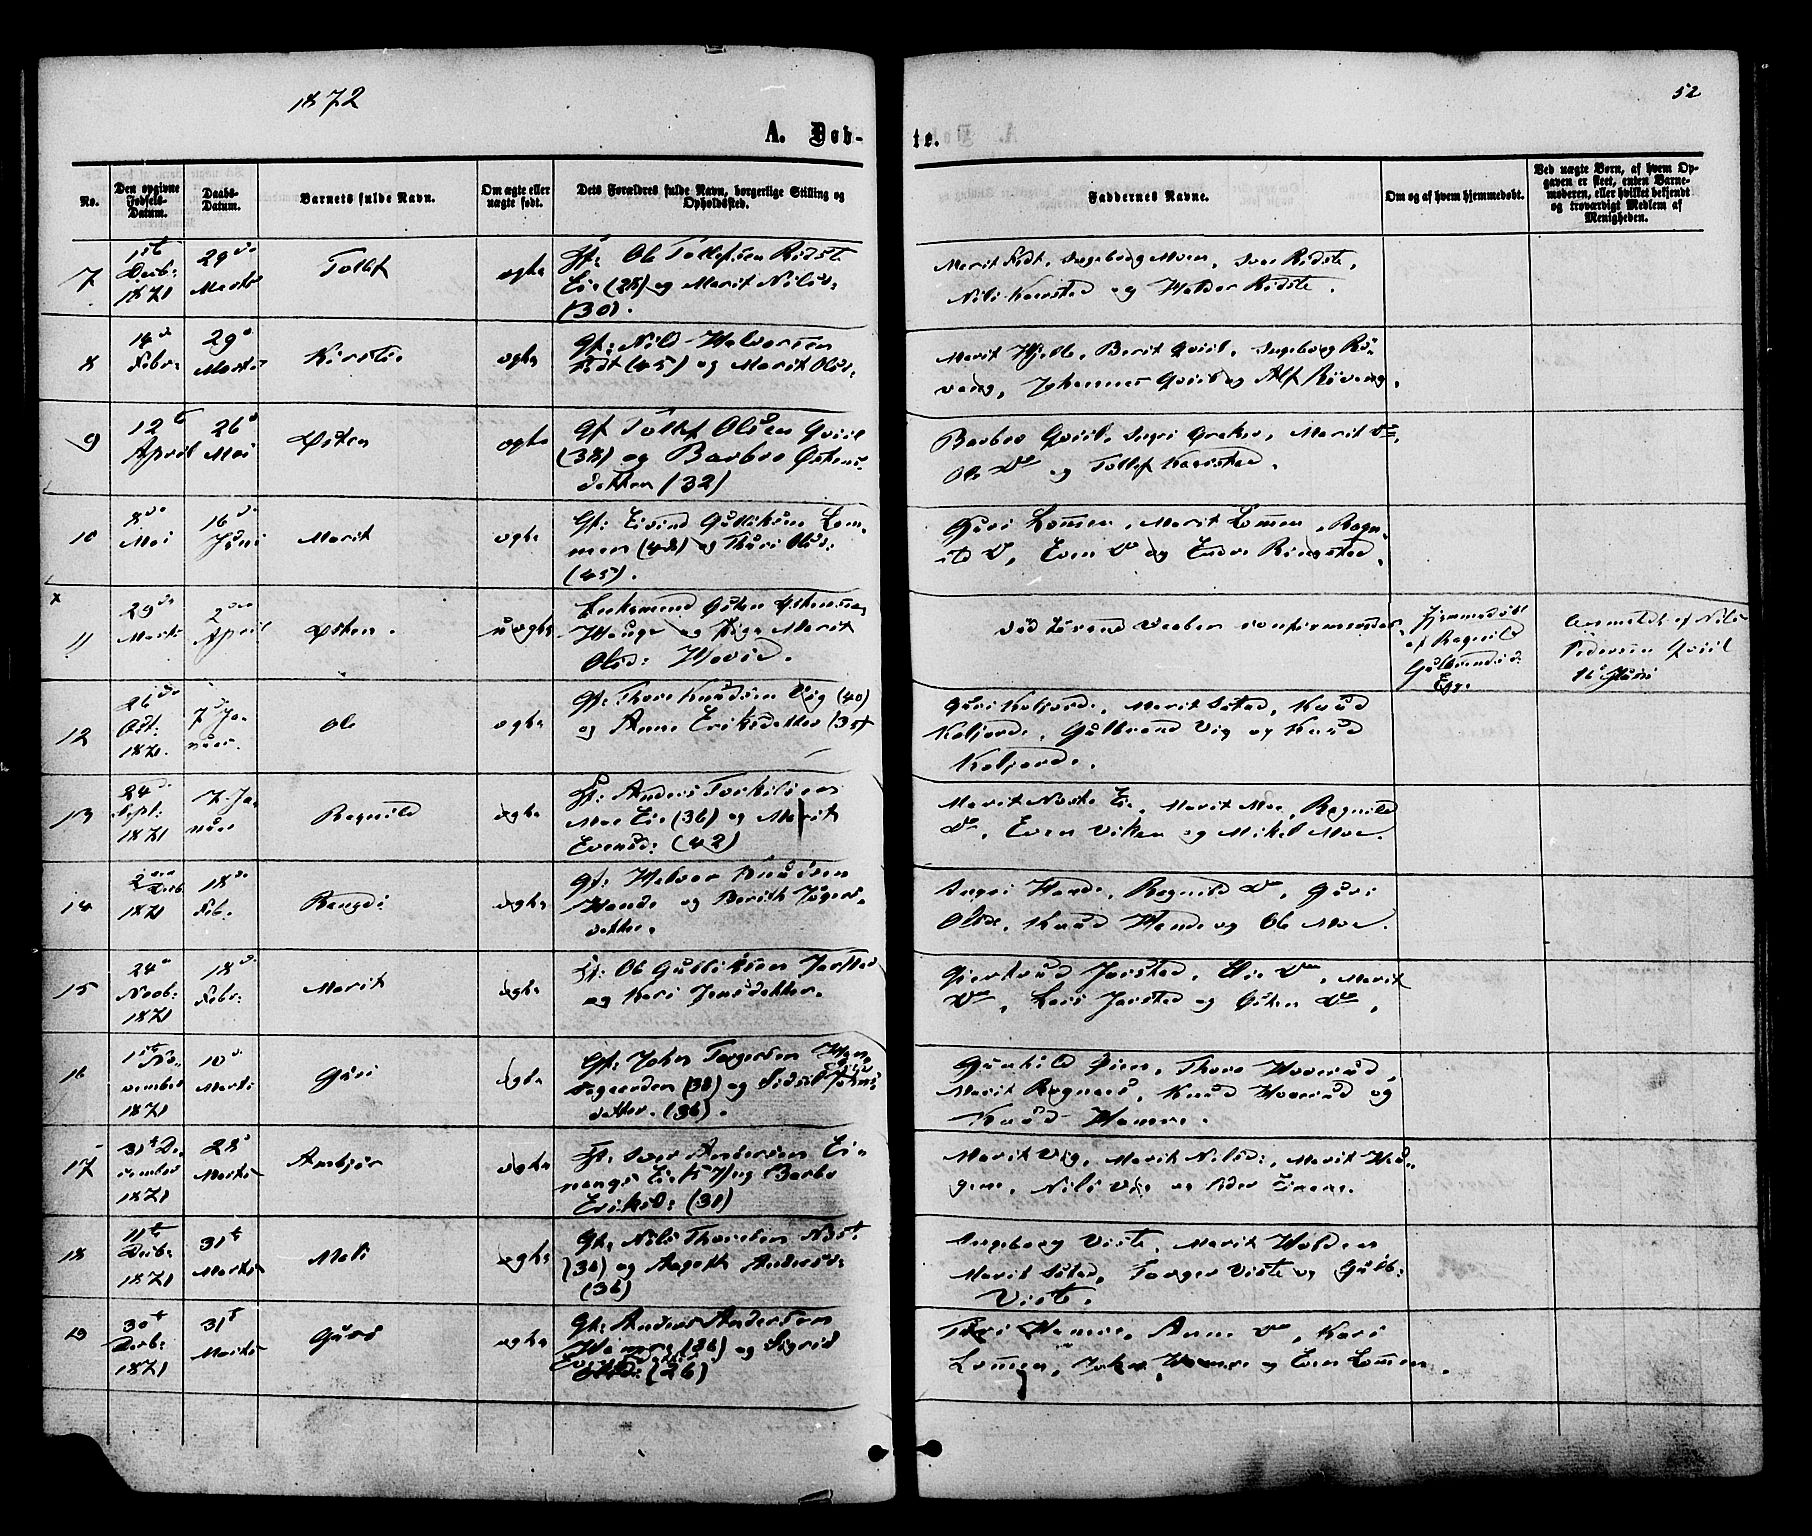 1872
52
A. Døb-
te.
No.
Den opgivne Fødsels-Datum.
Daabs-Datum.
Barnets fulde Navn.
Om ægte eller uægte født.
Dets Forældres fulde Navn, borgerlige Stilling og Opholdssted.
Faddernes Navne.
Om og af hvem hjemmedøbt.
Ved uægte Børn, af hvem Opgaven er skeet, enten Barnemoderen, eller hvilket bekjendt og troværdigt Medlem af Menigheden.
7
1ste Decb: 1871
29de Marts
Tollef
ægte
Ole Tollefsen Ridste
Eie (28) og Marit Nilsd:
(30).
Marit Fedt, Ingeborg Moen, Iver Ridste,
Nils Kaarstad og Haldor Ridste.
8
14de Febr:
29de Marts
Kirstie
ægte
Gf: Nils Halvorsen
Fedt (45) og Marit Olsd:
Marit Hjelle, Berit Qviil, Ingeborg Rø-
vang, Johannes Qviil og Alf Røvang.
9
12te April
26de Mai
Østen
ægte
Gf Tollef Olsen Qviil
(38) og Barbro Østens-
datter (32)
Barbro Qviil, Marit Do,
Ole Do og Tollef Kaarstad.
10
8de Mai
16de Juni
Marit
ægte
Gf: Eivind Gulliksen Lom-
men (48) og Thuri Olsd:
(45).
Guri Lommen, Marit Lommen, Ragn-
ild Do, Even Do og Endre Ringstad.
11
29de Marts
2den April
Østen.
uægte
Ungkarl Østen Østensen
Hauge og Pige Marit
Olsd: Hovid.
Hjemmedøbt
af Ragnild
Gulbrandsd:
Anmeldt af Nils
Pedersen Qviil
12
26de Oct: 1871.
7de Januar.
Ole
ægte
Gf: Thore Knudsen Vig (40)
og Anne Eriksdatter (35)
Guri Kaljorde, Marit Søtad, Knud
Kaljorde, Gulbrand Vig og Knud
Kaljorde.
13
24de Sept: 1871
7 Januar
Ragnild
ægte
Anders Torkilsen
Moe Eie (36) og Marit
Evensd: (42)
Marit Nøste Eie, Marit Moe, Ragnild
Do, Even Viken og Mikel Moe.
14
2den Decb. 1871
18de Feb.
Rangdi
ægte
Gf: Halvor Knudsen
Hande og Berith
datter.
Ingri Hande, Ragnild Do, Guri
Knud Hande og Ole Moe.
15
24de Novb: 1871
18de Febr:
Marit
ægte
Ole Gulliksen Jarstad
og Kari Jensdatter.
Gjertrud Jarstad, Do, Marit
Do, Lars Jarstad og Østen Do.
16
1ste November 1871
10de Marts
Guri
ægte
Gf: John Torgersen
(38) og Sidsel Johns-
datter. (36).
Gunhild Øien, Thora Hovrud,
Marit Ragnaes, Knud Hovrud og
Knud Hamre.
17
31te December 1871
28de Marts
Ambjør
ægte
Iver Andersen Ei-
nange Eie og Barbro
Eriksd: (31)
Marit Vig, Marit Nilsd:, Marit Hau-
gene, Nils Vig og Peder Einang.
18
11te Decb: 1871
31te Marts
Mali
ægte
Gf: Nils Thorsten Nøst
(36) og Aagoth Andersd:
(36)
Ingeborg Viste, Marit Halden
Marit Søtad, Torger Viste og Gulb:
Viste.
19
30te Decb: 1871
31te Marts
Guro
ægte
Gf: Anders Andersen
Hamre (26) og Sigrid
(26)
Thuri Hamre, Anne Do, Kari
Lommen, John Hamre og Even Lommen.